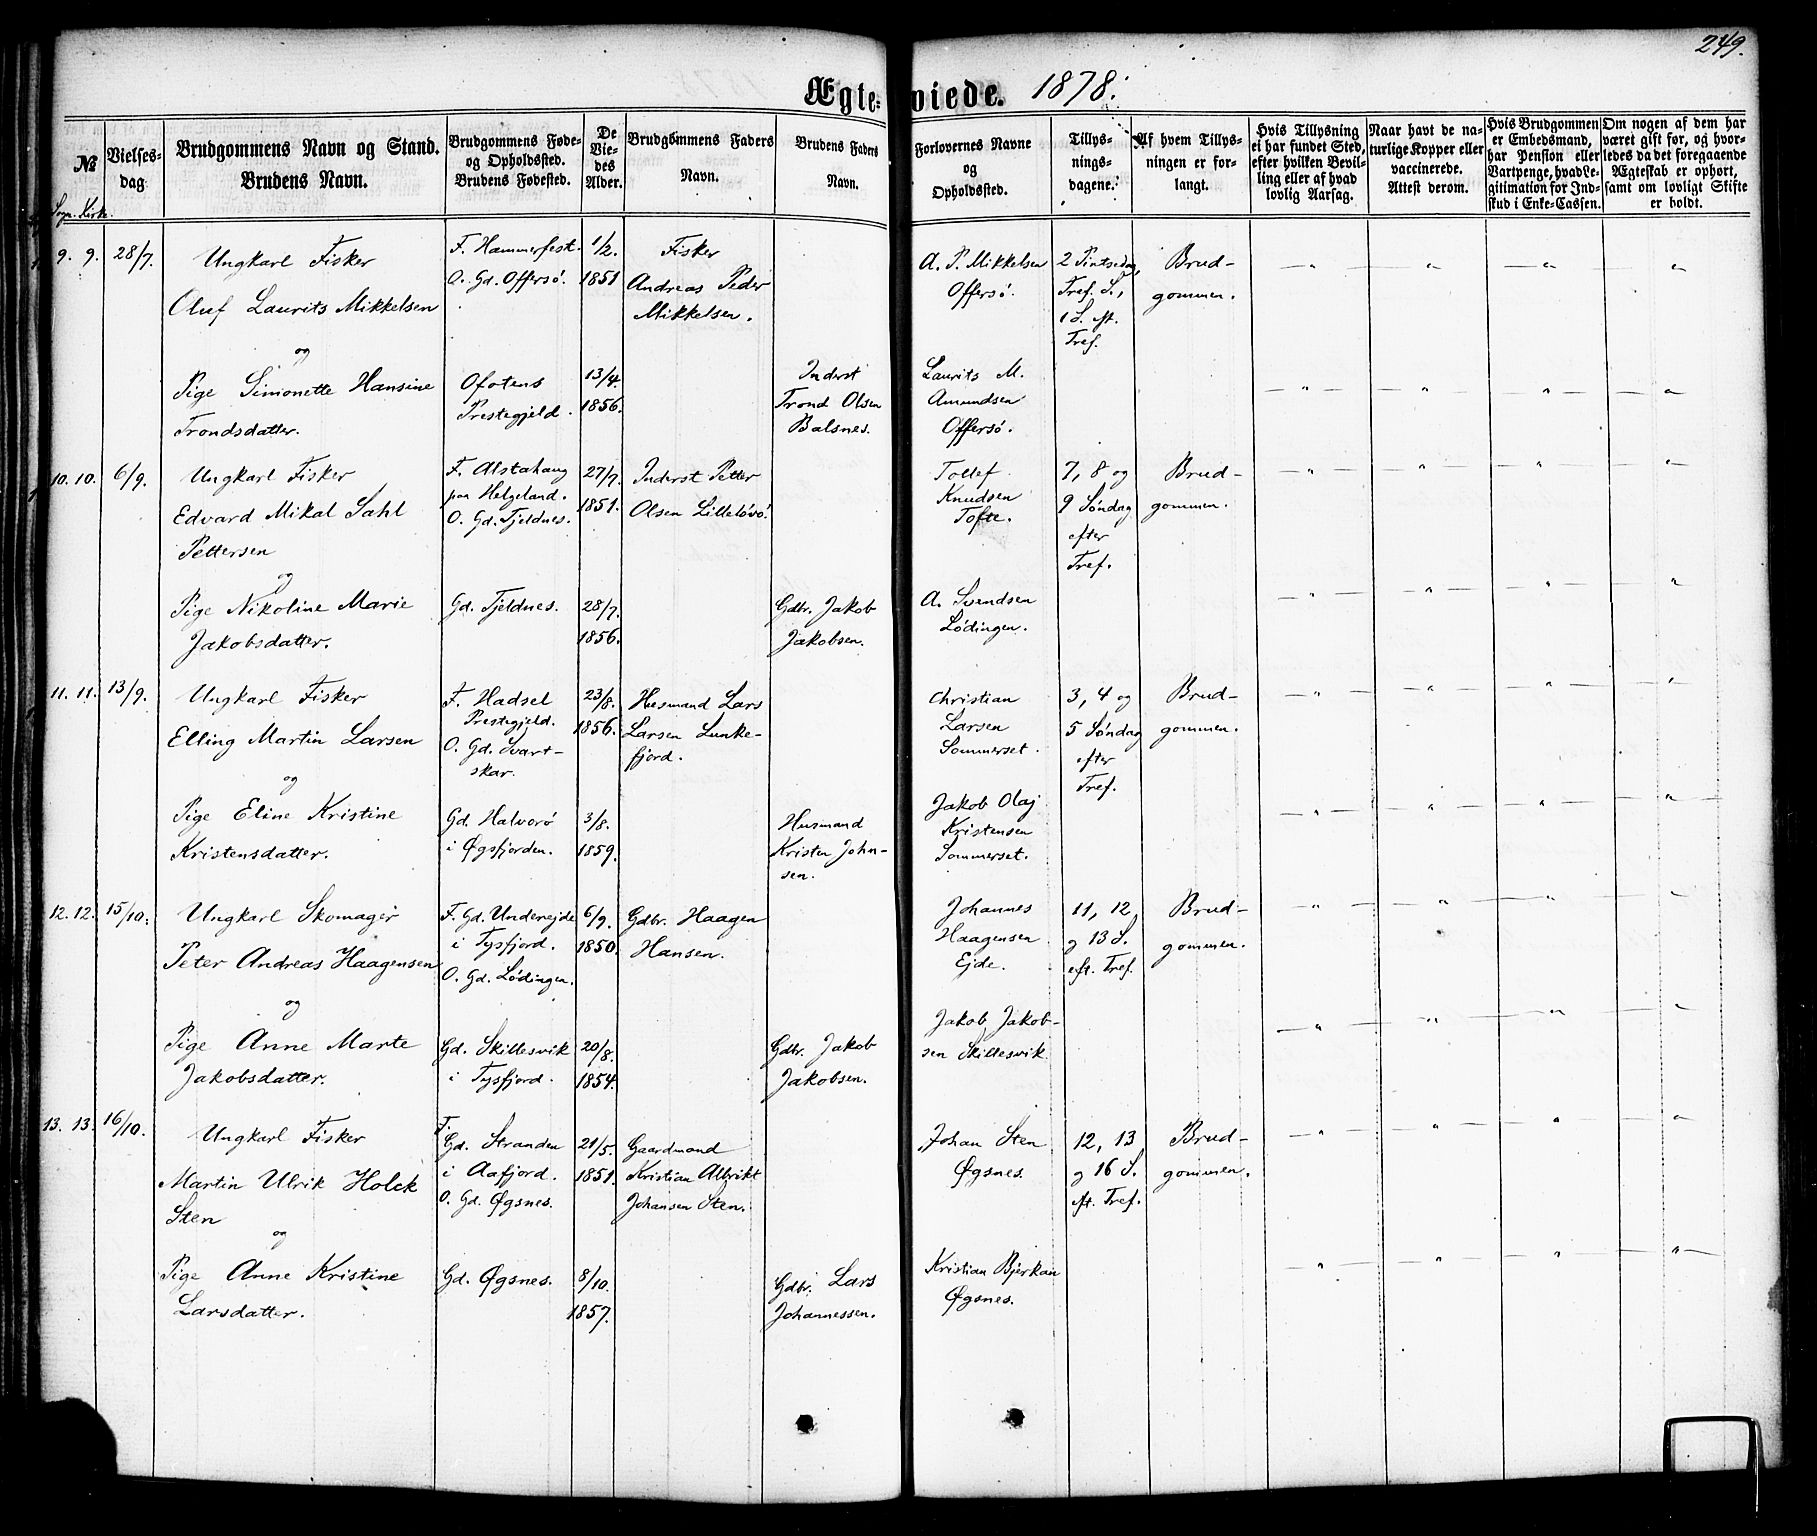 249.
Ægteviede. 1878.
№
Sogn. Kirk.
Vielses-
dag
Brudgommens Navn og Stand.
Brudens Navn.
Brudgommens Føde-
og Opholdssted.
Brudens Fødested.
De
Vie-
des
Alder.
Brudgommens Faders
Navn.
Brudens Faders
Navn.
Forlovernes Navne
og
Opholdssted.
Tillys-
nings-
dagene.
Af hvem Tillys-
ningen er for-
langt.
Hvis Tillysning
ei har fundet Sted,
efter hvilken Bevil-
ling eller af hvad
lovlig Aarsag.
Naar havt de na-
turlige Kopper eller
vaccinerede.
Attest derom.
Hvis Brudgommen
er Embedsmand,
har Pension eller
Vartpenge, hvad Le-
gitimation for Ind-
skud i Enke-Cassen.
Om nogen af dem har
været gift før, og hvor-
ledes da det foregaaende
Ægteskab er ophørt,
samt om lovligt Skifte
er holdt.
9. 9. 28/7.
Ungkarl Fisker
Oluf Laurits Mikkelsen
og
Pige Simonette Hansine
Trondsdatter.
F. Hammerfest.
O. Gd. Offersø.
Ofotens
Prestegjeld.
1/2.
1851
13/4.
1856.
Fisker
Andreas Peder
Mikkelsen.
Inderst
Trond Olsen
Balsnes.
A. P. Mikkelsen
Offersø.
Laurits M.
Amundsen
Offersø.
2 Pintsedag,
Tref. S.,
1 S. eft.
Tref.
Brud-
gommen.
10. 10. 6/9.
Ungkarl Fisker
Edvard Mikal Sahl
Pettersen
og
Pige Nikoline Marie
Jakobsdatter.
F. Alstahaug
paa Helgeland.
O. Gd. Tjeldnes.
Gd. Tjeldnes.
27/7.
1851.
28/7.
1856.
Inderst Petter
Olsen Lilleløvø.
Gdbr. Jakob
Jakobsen.
Tollef
Knudsen
Tofte.
A. Svendsen
Lødingen.
7, 8 og
9 Søndag
efter
Tref.
Brud-
gommen.
11. 11. 13/9.
Ungkarl Fisker
Elling Martin Larsen
og
Pige Eline Kristine
Kristensdatter.
F. Hadsel
Prestegjeld.
O. Gd. Svart-
skar.
Gd. Halvorø
i Øgsfjorden.
23/8.
1856.
3/8.
1859.
Husmand Lars
Larsen Lunke-
fjord.
Husmand
Kristen John-
sen.
Christian
Larsen
Sommerset.
Jakob Olaj
Kristensen
Sommerset.
3, 4 og
5 Søndag
efter
Tref.
Brud-
gommen.
12. 12. 15/10.
Ungkarl Skomager
Peter Andreas Haagensen
og
Pige Anne Marte
Jakobsdatter.
F. Gd. Underejde
i Tysfjord.
O. Gd. Lødingen.
Gd. Skillesvik
i Tysfjord.
6/9.
1850.
20/8.
1854.
Gdbr. Haagen
Hansen.
Gdbr. Jakob
Jakobsen.
Johannes
Haagensen
Ejde.
Jakob Jakob-
sen Skillesvik.
11, 12
og 13 S.
eft. Tref.
Brud-
gommen.
13. 13. 16/10.
Ungkarl Fisker
Martin Ulrik Holck
Sten
og
Pige Anne Kristine
Larsdatter.
F.
Gd. Stranden
i Aafjord.
O. Gd. Øgsnes.
Gd. Øgsnes.
21/5.
1851.
8/10.
1857.
Gaardmand
Kristian Albrikt
Johansen Sten.
Gdbr. Lars
Johannessen.
Johan Sten
Øgsnes.
Kristian Bjerkan
Øgsnes.
12, 13
og 16 S.
eft. Tref.
Brud-
gommen.